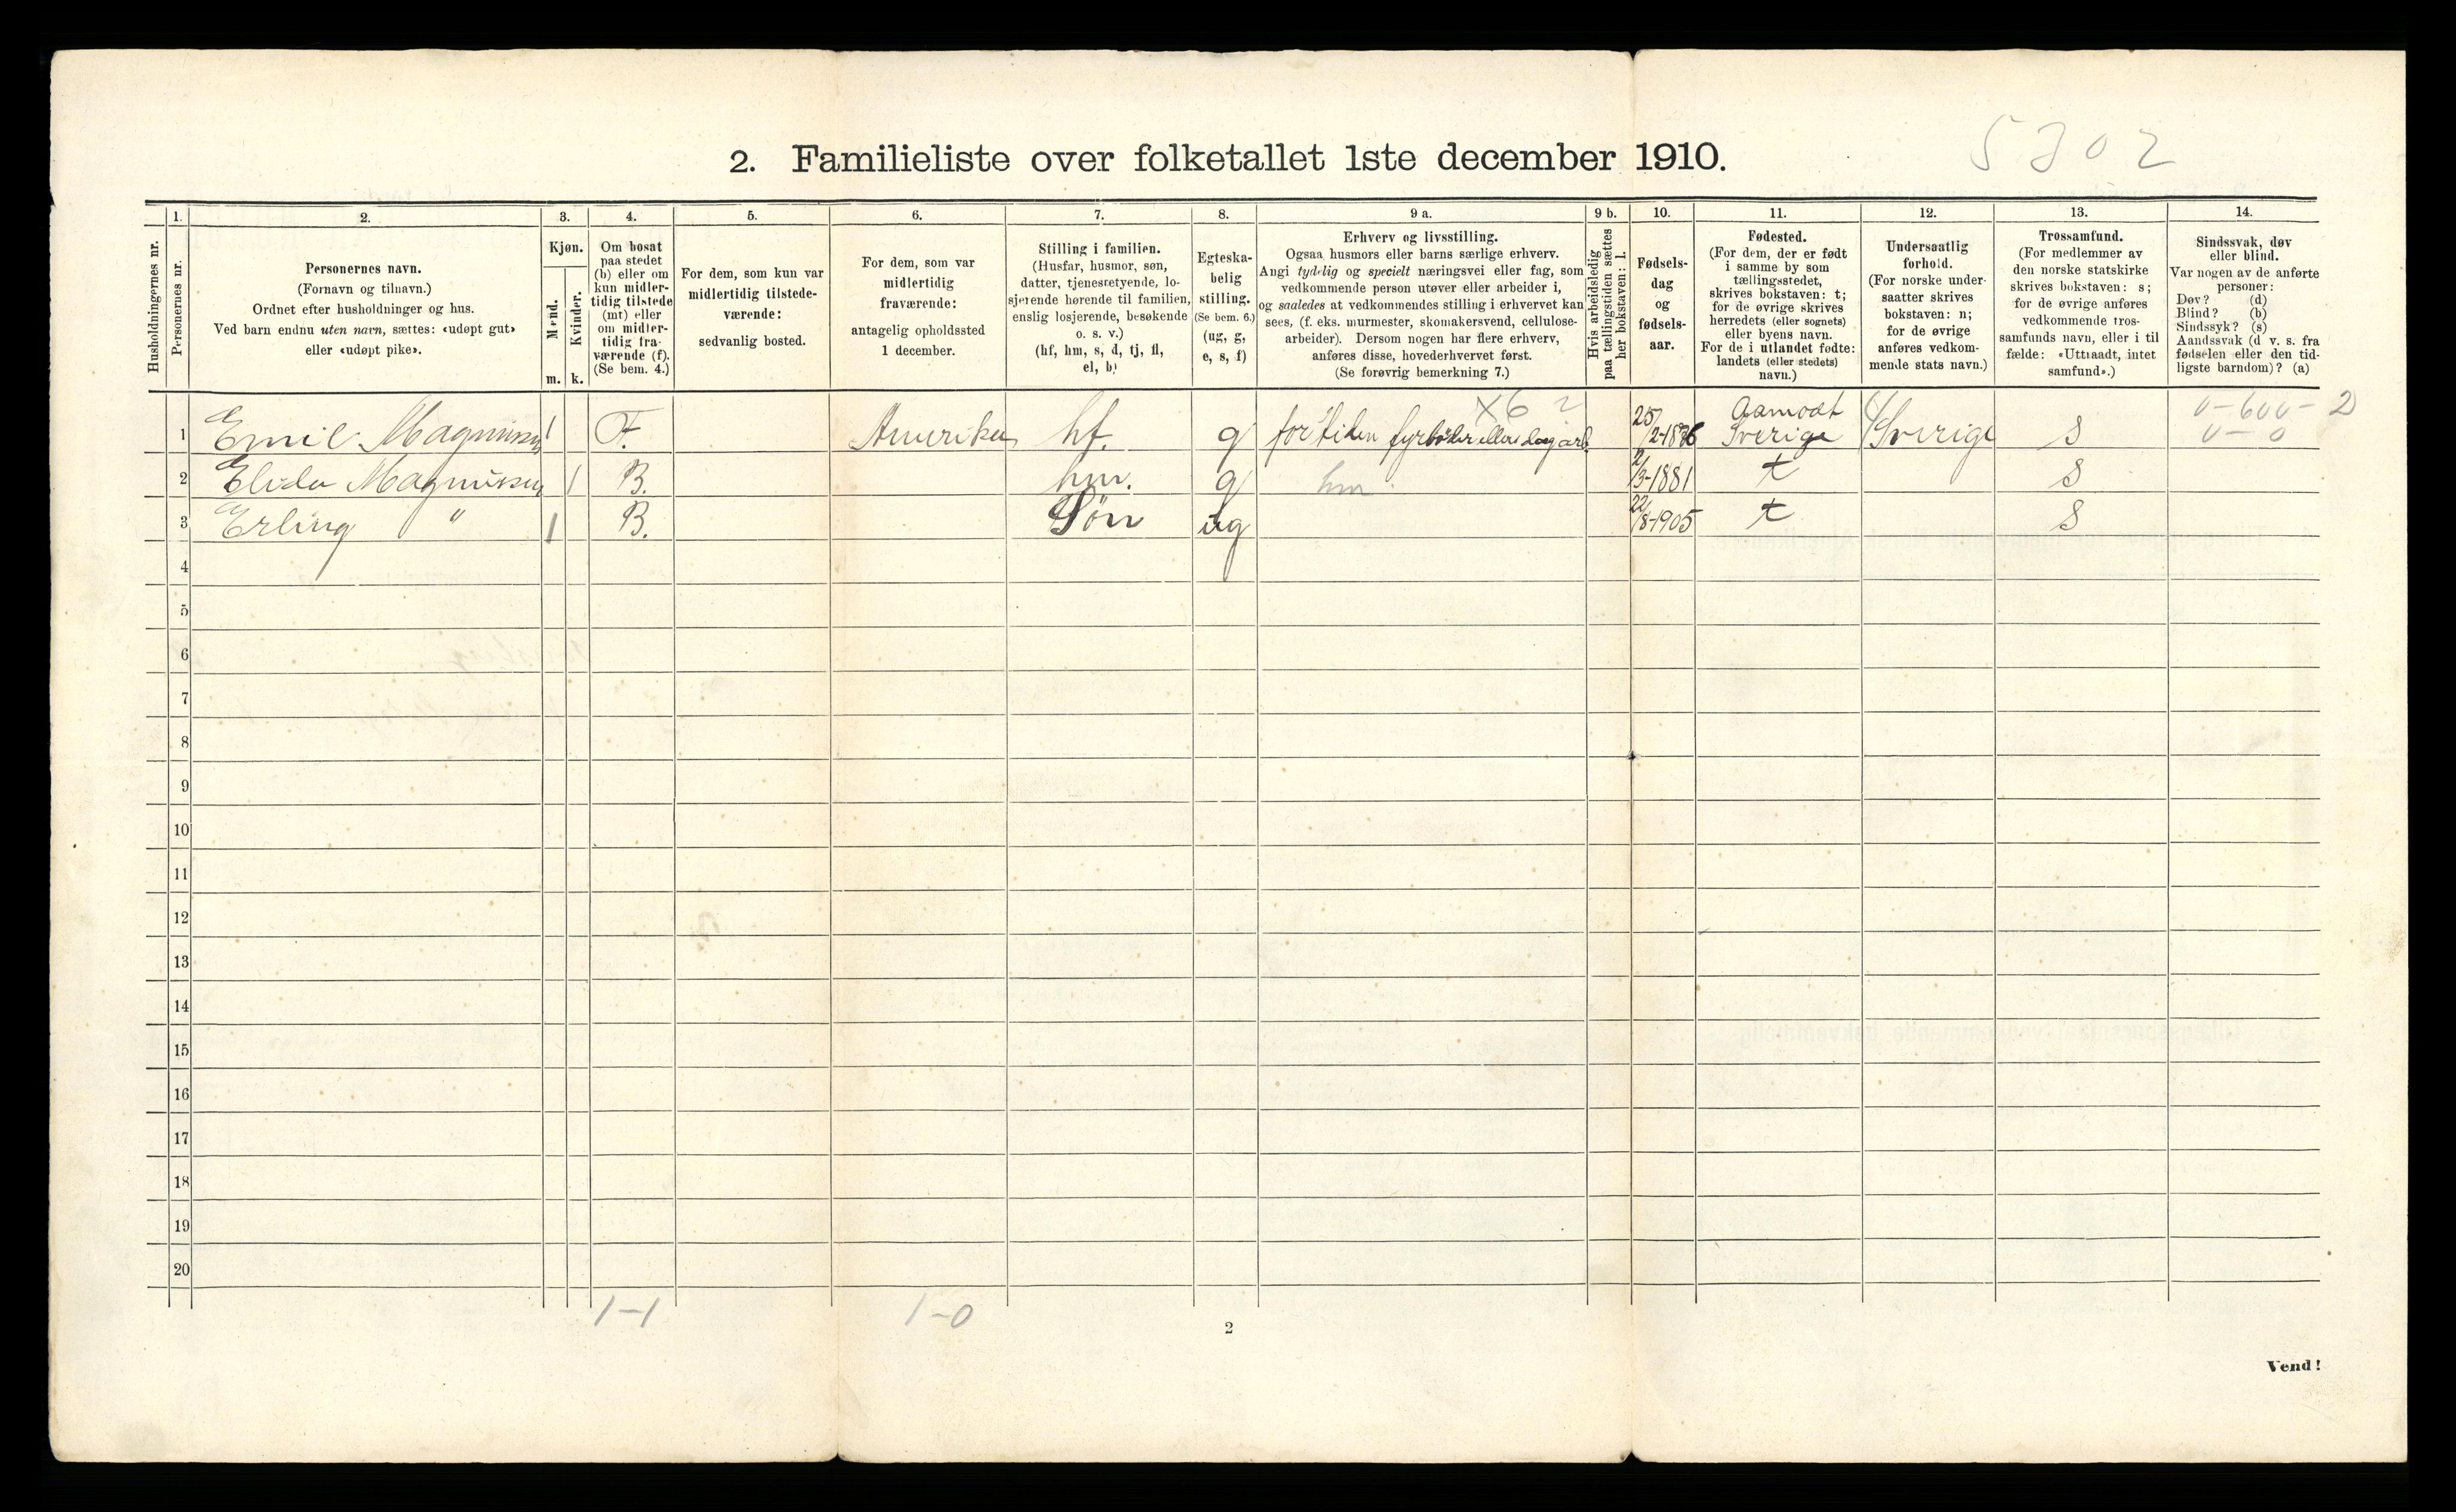 5302
2. Familieliste over folketallet 1ste december 1910.
1. 2. 3. 4. 5. 6. 7. 8. 9 a. 9 b. 10. 11. 12. 13. 14.
Husholdningernes nr.
Personernes nr.
Personernes navn.
(Fornavn og tilnavn.)
Ordnet efter husholdninger og hus.
Ved barn endnu uten navn, sættes: «udøpt gut»
eller «udøpt pike».
Kjøn.
Mænd.
Kvinder.
m. k.
Om bosat
paa stedet
(b) eller om
kun midler-
tidig tilstede
(mt) eller
om midler-
tidig fra-
værende (f).
(Se bem. 4.)
For dem, som kun var
midlertidig tilstede-
værende:
sedvanlig bosted.
For dem, som var
midlertidig
fraværende:
antagelig opholdssted
1 december.
Stilling i familien.
(Husfar, husmor, søn,
datter, tjenesretyende, lo-
sjerende hørende til familien,
enslig losjerende, besøkende
o. s. v.)
(hf, hm, s, d, tj, fl,
el, b)
Egteska-
belig
stilling.
(Se bem. 6.)
(ug, g,
e, s, f)
Erhverv og livsstilling.
Ogsaa husmors eller barns særlige erhverv.
Angi tydelig og specielt næringsvei eller fag, som
vedkommende person utøver eller arbeider i,
og saaledes at vedkommendes stilling i erhvervet kan
sees, (f. eks. murmester, skomakersvend, cellulose-
arbeider). Dersom nogen har flere erhverv,
anføres disse, hovederhvervet først.
(Se forøvrig bemerkning 7.)
Hvis arbeidsledig
paa tællingstiden sættes
her bokstaven: l.
Fødsels-
dag
og
fødsels-
aar.
Fødested.
(For dem, der er født
i samme by som
tællingsstedet,
skrives bokstaven: t;
for de øvrige skrives
herredets (eller sognets)
eller byens navn.
For de i utlandet fødte:
landets (eller stedets)
navn.)
Undersaatlig
forhold.
(For norske under-
saatter skrives
bokstaven: n;
for de øvrige
anføres vedkom-
mende stats navn.)
Trossamfund.
(For medlemmer av
den norske statskirke
skrives bokstaven: s;
for de øvrige anføres
vedkommende tros-
samfunds navn, eller i til
fælde: «Uttraadt, intet
samfund».)
Sindssvak, døv
eller blind.
Var nogen av de anførte
personer:
Døv? (d)
Blind? (b)
Sindssyk? (s)
Aandssvak (d v. s. fra
fødselen eller den tid-
ligste barndom)? (a)
X6 2 Aamodt 0-600-2
1 Emil Magnussen 1 F. Amerika hf. g for tiden fyrbøder ellers dagarb. 25/2-1876 Sverige Sverige s 0-0
2 Elida Magnussen 1 B. hm. g hm 2/3-1881 t s
3 Erling " 1 B. Søn ug 22/8-1905 t s
4
5
6
7
8
9
10
11
12
13
14
15
16
17
18
19
20
1-1 1-0
2
Vend!